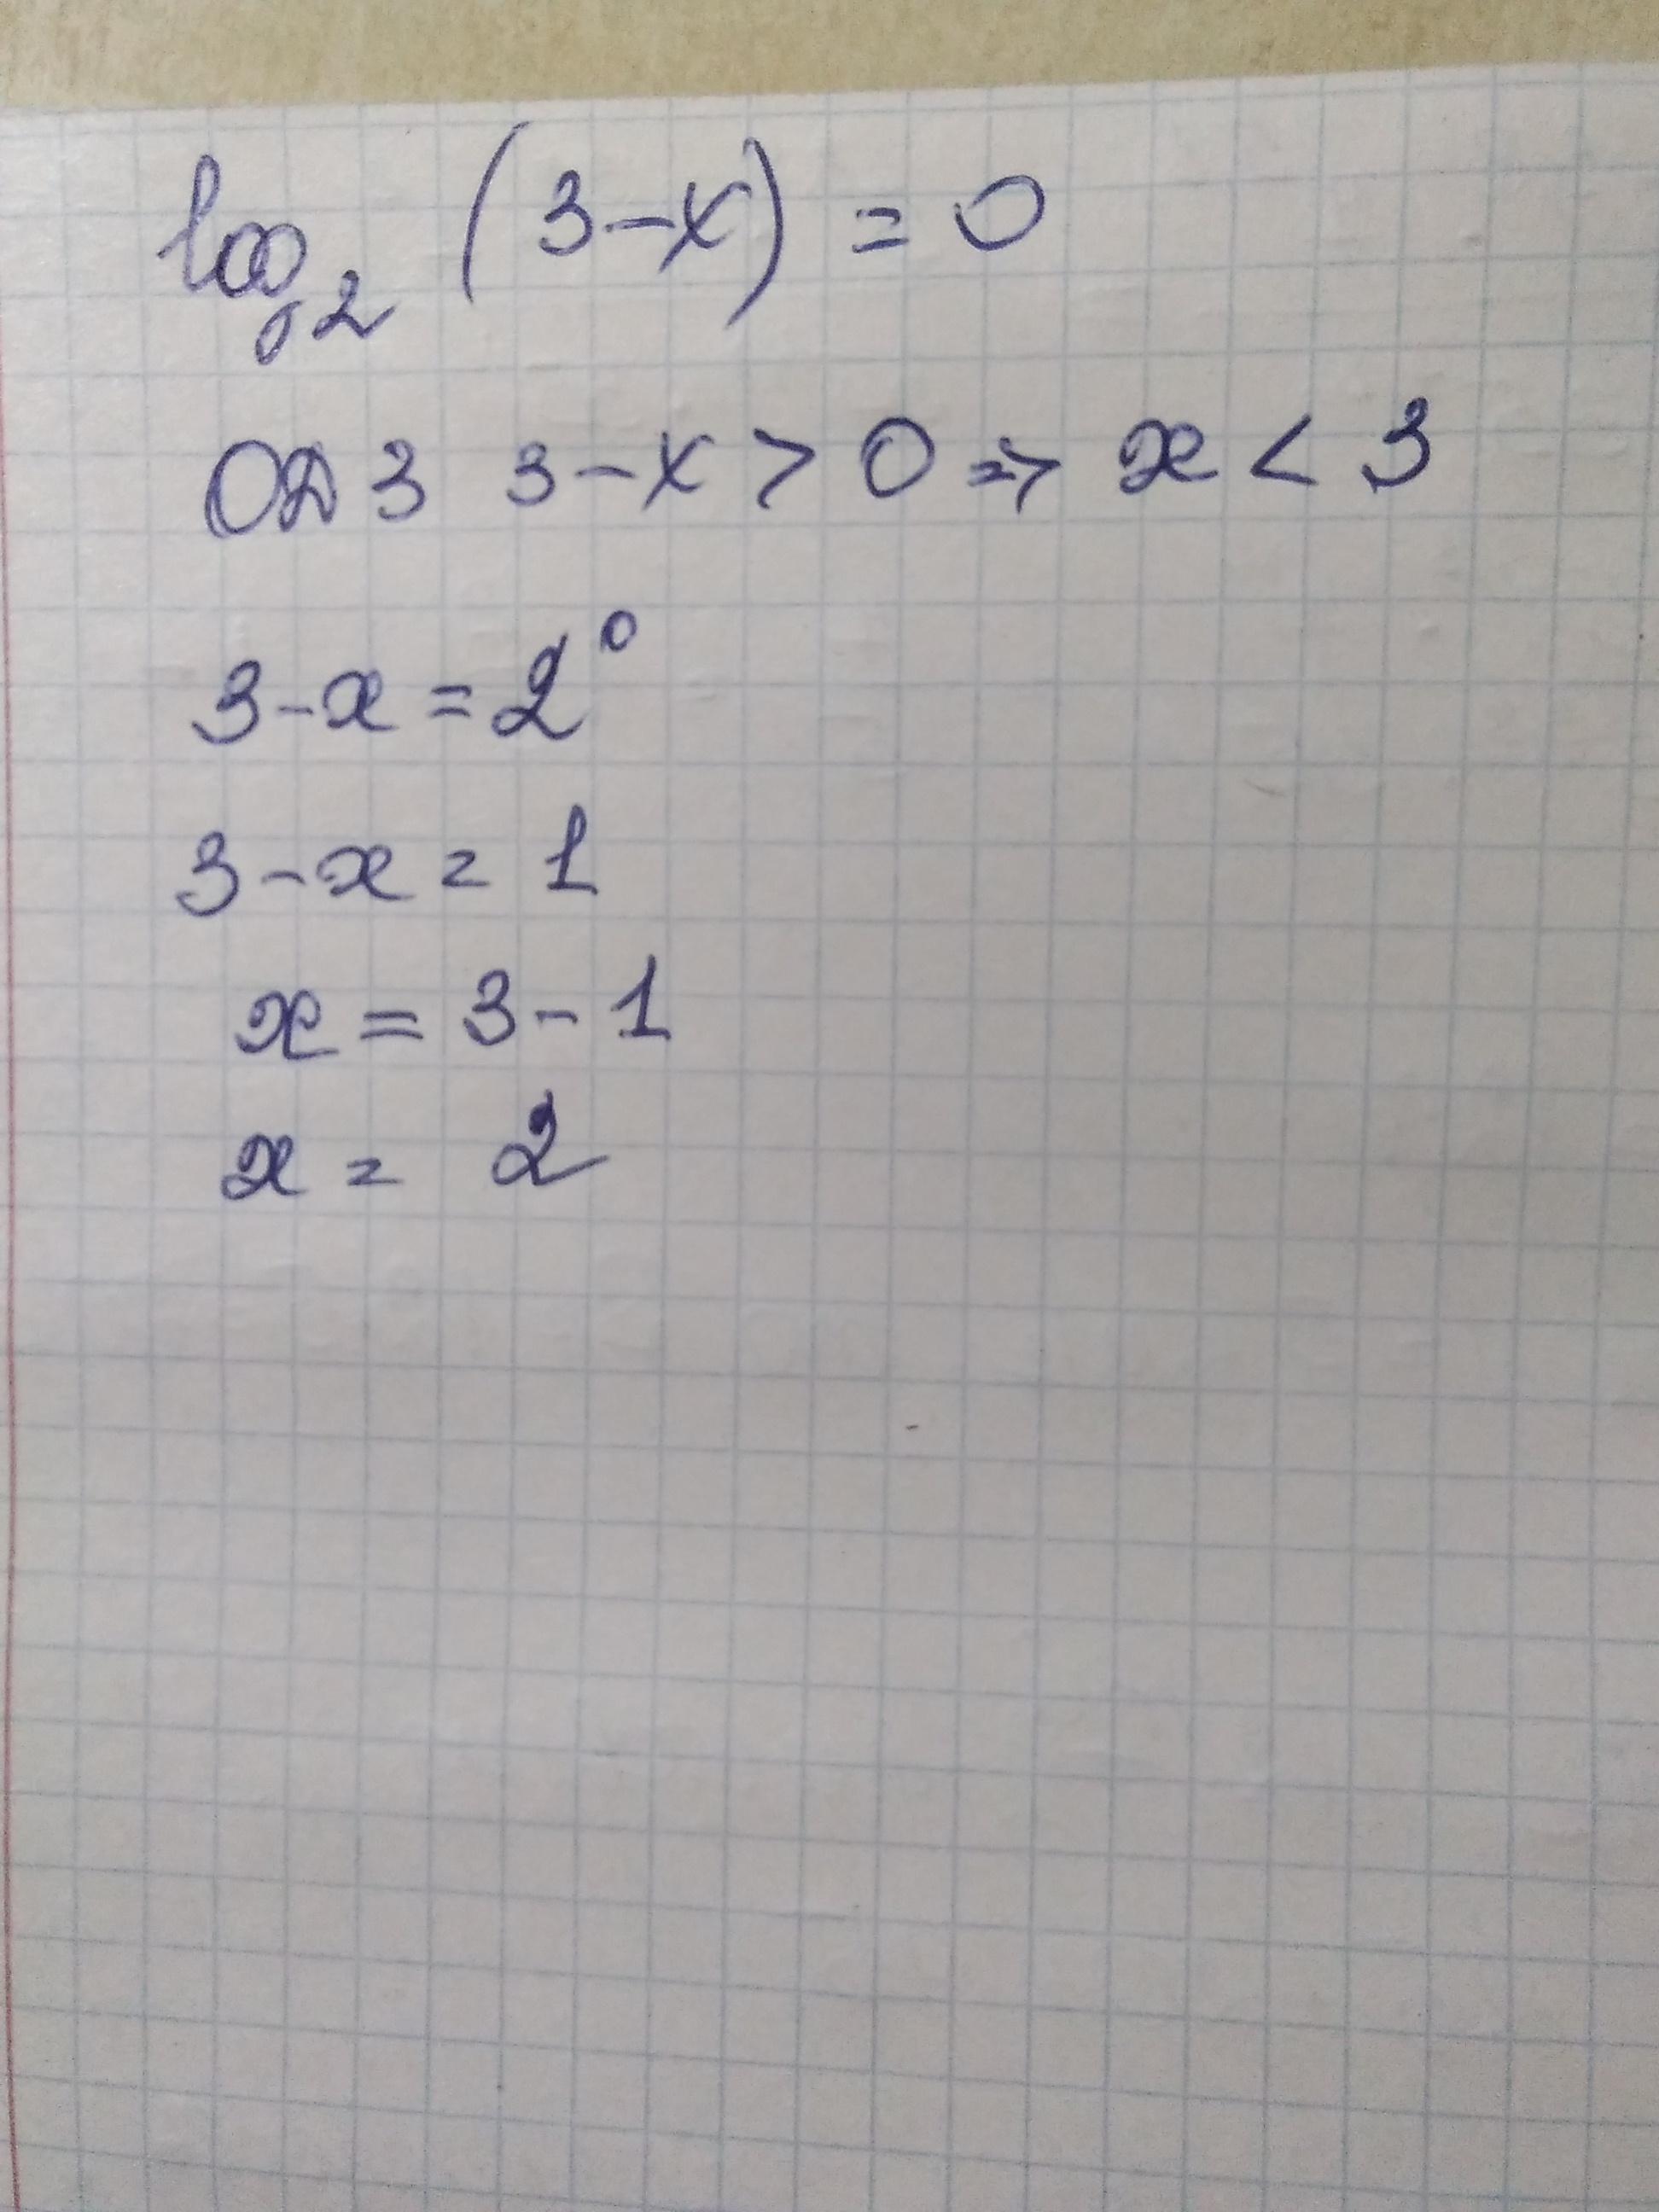 log₂ (3-x) = 0
ОДЗ 3-x > 0 ⇒ x < 3
3-x = 2⁰
3-x = 1
x = 3-1
x = 2